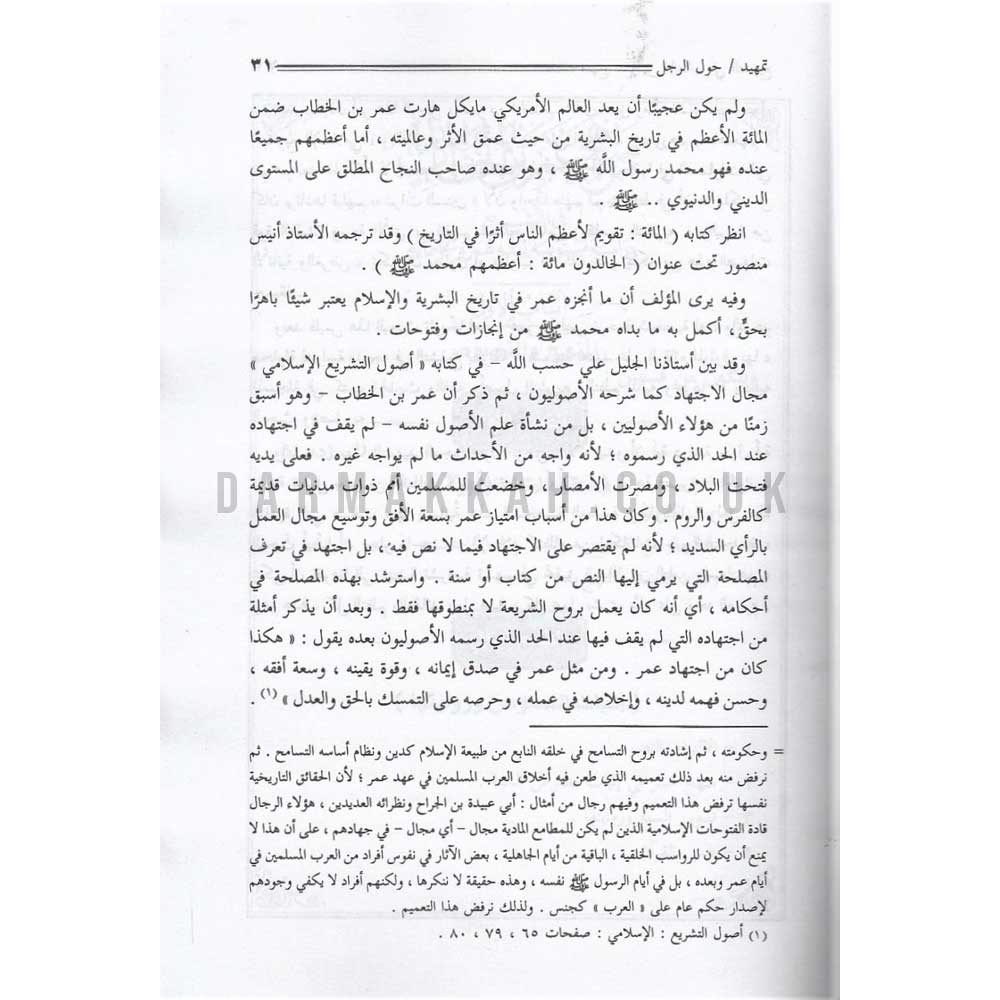 تمهيد / حول الرجل ٣١
ولم يكن عجيبًا أن يعد العالم الأمريكي مايكل هارت عمر بن الخطاب ضمن
المائة الأعظم في تاريخ البشرية من حيث عمق الأثر وعالميته ، أما أعظمهم جميعًا
عنده فهو محمد رسول اللَّه ﷺ ، وهو عنده صاحب النجاح المطلق على المستوى
الديني والدنيوي .. ﷺ .
انظر كتابه ( المائة : تقويم لأعظم الناس أثرًا في التاريخ ) وقد ترجمه الأستاذ أنيس
منصور تحت عنوان ( الخالدون مائة : أعظمهم محمد ﷺ ) .
وفيه يرى المؤلف أن ما أنجزه عمر في تاريخ البشرية والإسلام يعتبر شيئًا باهرًا
بحقٍّ ، أكمل به ما بداه محمد ﷺ من إنجازات وفتوحات .
وقد بين أستاذنا الجليل علي حسب اللَّه – في كتابه « أصول التشريع الإسلامي »
مجال الاجتهاد كما شرحه الأصوليون ، ثم ذكر أن عمر بن الخطاب – وهو أسبق
زمنًا من هؤلاء الأصوليين ، بل من نشأة علم الأصول نفسه – لم يقف في اجتهاده
عند الحد الذي رسموه ؛ لأنه واجه من الأحداث ما لم يواجه غيره . فعلى يديه
فتحت البلاد ، ومصرت الأمصار ، وخضعت للمسلمين أمم ذوات مدنيات قديمة
DARMAKKAH.CO.UK
كالفرس والروم . وكان هذا من أسباب امتياز عمر بسعة الأفق وتوسيع مجال العمل
بالرأي السديد ؛ لأنه لم يقتصر على الاجتهاد فيما لا نص فيه ، بل اجتهد في تعرف
المصلحة التي يرمي إليها النص من كتاب أو سنة . واسترشد بهذه المصلحة في
أحكامه ، أي أنه كان يعمل بروح الشريعة لا بمنطوقها فقط . وبعد أن يذكر أمثلة
من اجتهاده التي لم يقف فيها عند الحد الذي رسمه الأصوليون بعده يقول : « هكذا
كان من اجتهاد عمر . ومن مثل عمر في صدق إيمانه ، وقوة يقينه ، وسعة أفقه ،
وحسن فهمه لدينه ، وإخلاصه في عمله ، وحرصه على التمسك بالحق والعدل » (١) .
= وحكومته ، ثم إشادته بروح التسامح في خلقه النابع من طبيعة الإسلام كدين ونظام أساسه التسامح . ثم
نرفض منه بعد ذلك تعميمه الذي طعن فيه أخلاق العرب المسلمين في عهد عمر ؛ لأن الحقائق التاريخية
نفسها ترفض هذا التعميم وفيهم رجال من أمثال : أبي عبيدة بن الجراح ونظرائه العديدين ، هؤلاء الرجال
قادة الفتوحات الإسلامية الذين لم يكن للمطامع المادية مجال – أي مجال – في جهادهم ، على أن هذا لا
يمنع أن يكون للرواسب الخلقية ، الباقية من أيام الجاهلية ، بعض الآثار في نفوس أفراد من العرب المسلمين في
أيام عمر وبعده ، بل في أيام الرسول ﷺ نفسه ، وهذه حقيقة لا ننكرها ، ولكنهم أفراد لا يكفي وجودهم
لإصدار حكم عام على « العرب » كجنس . ولذلك نرفض هذا التعميم .
(١) أصول التشريع : الإسلامي : صفحات ٦٥ ، ٧٩ ، ٨٠ .